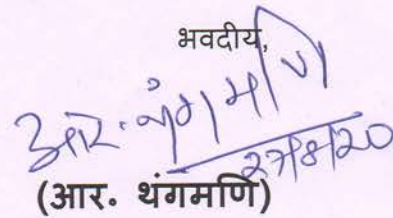 भवदीय,
आर. थंगमणि
27/8/20
(आर. थंगमणि)